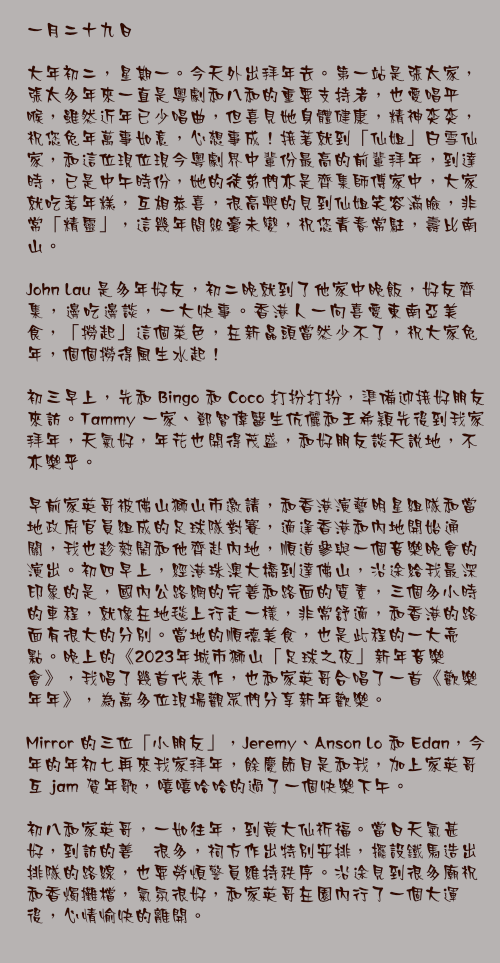 一月二十九日
大年初二，星期一。今天外出拜年去。第一站是張太家，
張太多年來一直是粵劇和八和的重要支持者，也愛唱平
喉，雖然近年已少唱曲，但喜見她身體健康，精神奕奕，
祝您兔年萬事如意，心想事成！接著就到「仙姐」白雪仙
家，和這位現位現今粵劇界中輩份最高的前輩拜年，到達
時，已是中午時份，她的徒弟們亦是齊集師傅家中，大家
就吃著年糕，互相恭喜，很高興的見到仙姐笑容滿臉，非
常「精靈」，這幾年間絲毫未變，祝您青春常駐，壽比南
山。
John Lau 是多年好友，初二晚就到了他家中晚飯，好友齊
集，邊吃邊談，一大快事。香港人一向喜愛東南亞美
食，「撈起」這個菜色，在新歲頭當然少不了，祝大家兔
年，個個撈得風生水起！
初三早上，先和 Bingo 和 Coco 打扮打扮，準備迎接好朋友
來訪。Tammy 一家、鄧智偉醫生伉儷和王希穎先後到我家
拜年，天氣好，年花也開得茂盛，和好朋友談天說地，不
亦樂乎。
早前家英哥被佛山獅山市邀請，和香港演藝明星組隊和當
地政府官員組成的足球隊對賽，適逢香港和內地開始通
關，我也趁熱鬧和他齊赴內地，順道參與一個音樂晚會的
演出。初四早上，經港珠澳大橋到達佛山，沿途給我最深
印象的是，國內公路網的完善和路面的質素，三個多小時
的車程，就像在地毯上行走一樣，非常舒適，和香港的路
面有很大的分別。當地的順德美食，也是此程的一大亮
點。晚上的《2023年城市獅山「足球之夜」新年音樂
會》，我唱了幾首代表作，也和家英哥合唱了一首《歡樂
年年》，為萬多位現場觀眾們分享新年歡樂。
Mirror 的三位「小朋友」，Jeremy、Anson Lo 和 Edan，今
年的年初七再來我家拜年，餘慶節目是和我，加上家英哥
互 jam 賀年歌，嘻嘻哈哈的過了一個快樂下午。
初八和家英哥，一如往年，到黃大仙祈福。當日天氣甚
好，到訪的善　很多，祠方作出特別安排，擺設鐵馬造出
排隊的路線，也要勞煩警員維持秩序。沿途見到很多廟祝
和香燭攤檔，氣氛很好，和家英哥在園內行了一個大運
後，心情愉快的離開。